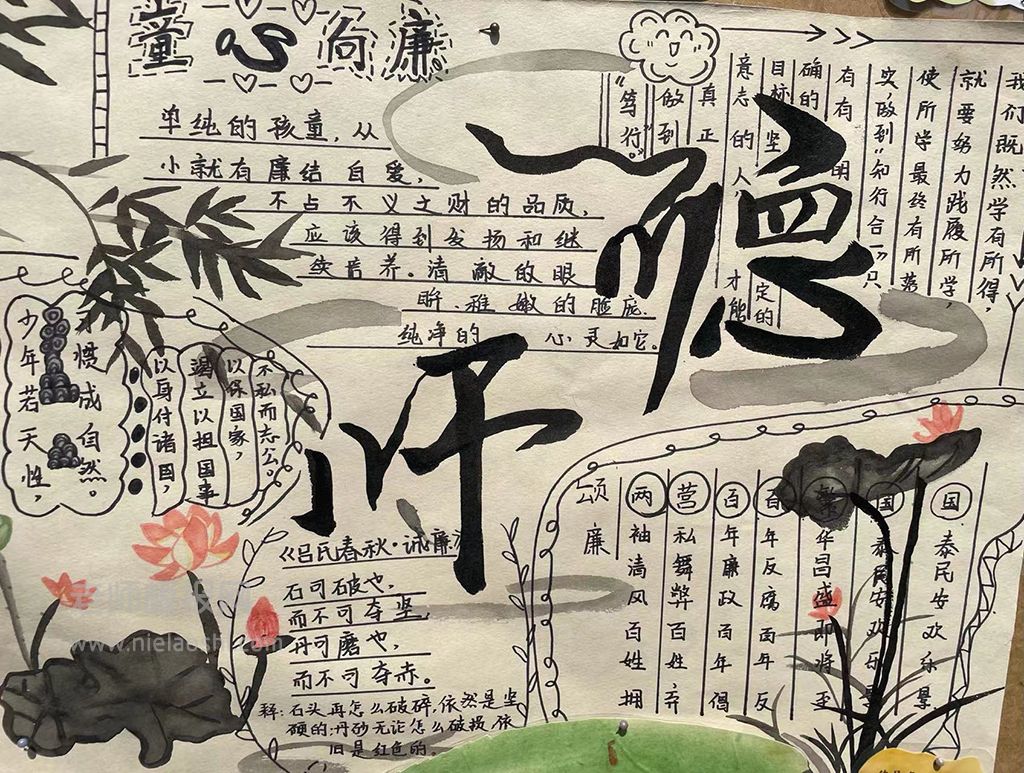 童心向廉
单纯的孩童，从
小就有廉结自爱，
不占不义之财的品质，
应该得到发扬和继
续培养。清澈的眼
眸、稚嫩的脸庞
纯净的 心灵如它。
我们既然学有所得，
就要努力践履所学，
使所学最终有所落
实，做到“知行合一”只
有有明
确的
目标 坚定的
意志的人，才能
真正
做到
“笃行”。
少年若天性，
习惯成自然。
以身付诸国，
竭立以担国事
以保国家，
不私而志公。
《吕氏春秋·诚廉》
石可破也，
而不可夺坚，
丹可磨也，
而不可夺赤。
释：石头再怎么破碎，依然是坚
硬的；丹砂无论怎么破损，依
旧是红色的。
颂廉
两袖清风百姓拥
营私舞弊百姓弃
百年廉政百年倡
百年反腐面年反
繁华昌盛即将至
国泰民安欢乐景
国泰民安欢乐景
www.nielaoshi.com